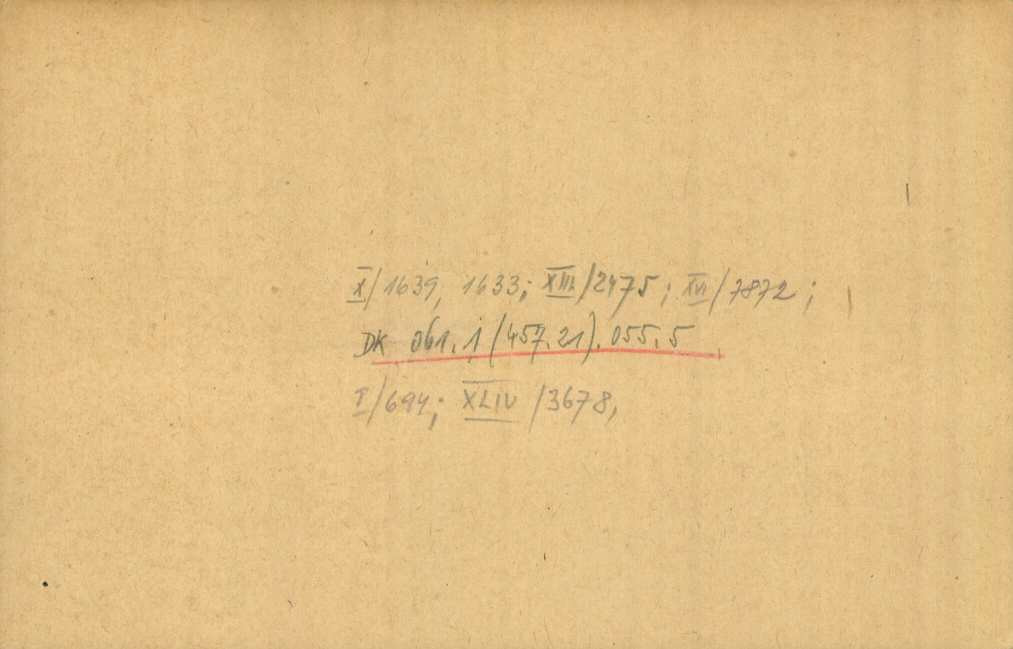 X/1639, 1633; XIII/2475; XVI/7872;
DK 061.1(457.21).055.5
I/694; XLIV/3678,